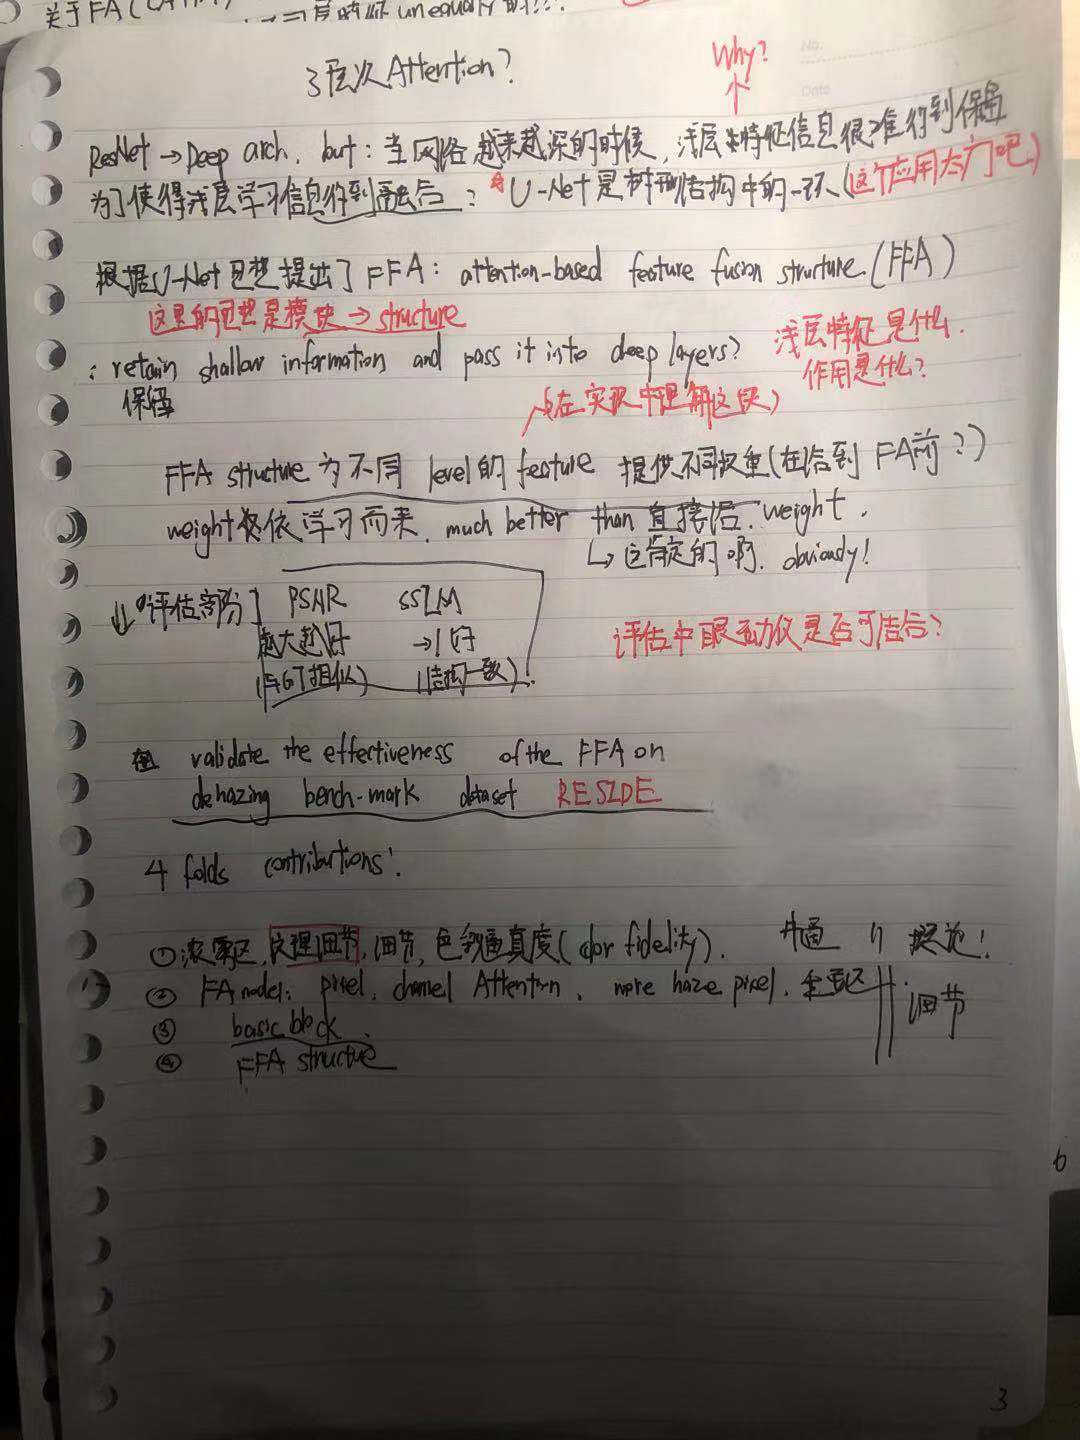 关于FA(
unequally的!!!
3层次Attention?
Why?
No.
Date
ResNet → Deep arch, but: 当网络越来越深的时候, 浅层特征信息很难得到保留
为了使得浅层学习信息得到融合: U-Net是树型结构中的一环 (这个应用太广吧)
根据U-Net思想提出了FFA: attention-based feature fusion structure. (FFA)
这里的思想是模块 → structure
浅层特征是什么.
: retain shallow information and pass it into deep layers?
作用是什么?
保留
在实现中理解这块)
FFA structure 为不同 level的feature 提供不同权重(在给到FA前?)
weight 依学习而来, much better than 直接给 weight.
↳ 这肯定的啊, obviously!
评估部分
PSNR SSIM
越大越好 →1好
(与GT相似) (结构一致)
评估中眼动仪是否可结合?
validate the effectiveness of the FFA on
dehazing bench-mark dataset RESIDE
4 folds contributions:
① 浓雾区, 纹理细节, 细节, 色彩逼真度(color fidelity).
② FA model: pixel, channel Attention, more haze pixel,
细节
③ basic block
④ FFA structure
6
3